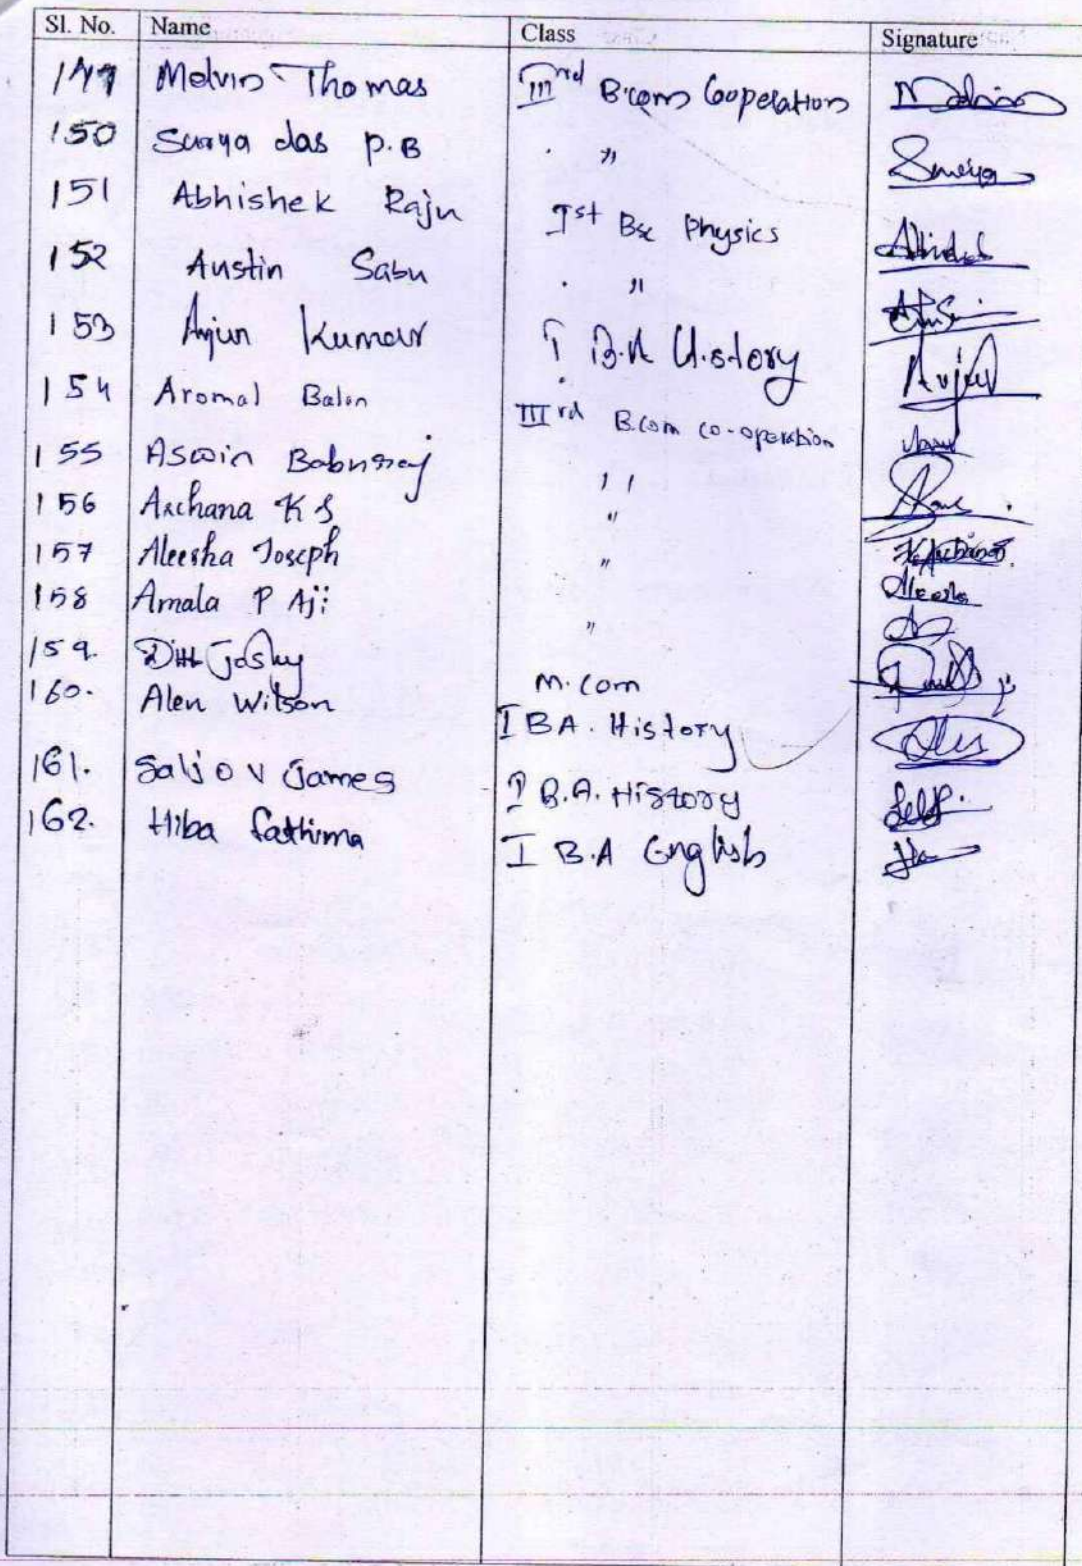 Sl. No. Name Class Signature
149 Melvin Thomas IIIrd B.com Cooperation
150 Surya das P.B "
151 Abhishek Raju Ist Bsc Physics
152 Austin Sabu "
153 Arjun Kumar I B.A History
154 Aromal Balan IIIrd B.Com co-operation
155 Aswin Baburaj "
156 Archana K S "
157 Aleesha Joseph "
158 Amala P Aji "
159. Joshy M.com
160. Alen Wilson I BA. History
161. Saljo V James I B.A. History
162. Hiba fathima I B.A English